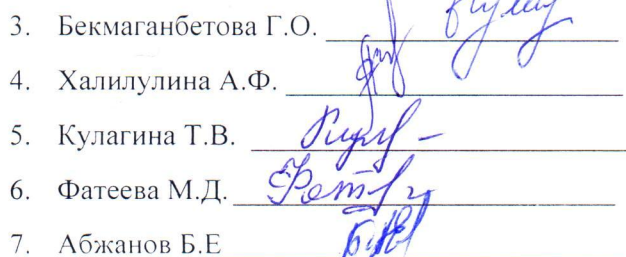 3. Бекмаганбетова Г.О.
4. Халилулина А.Ф.
5. Кулагина Т.В.
6. Фатеева М.Д.
7. Абжанов Б.Е